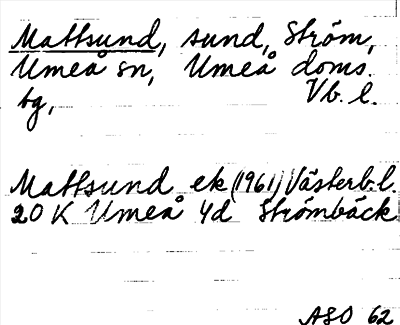 Mattsund, sund, Ström,
Umeå sn, Umeå doms.
tg, Vb. l.
Mattsund ek (1961) Västerb.l.
20 K Umeå 4d Strömbäck
ASO 62